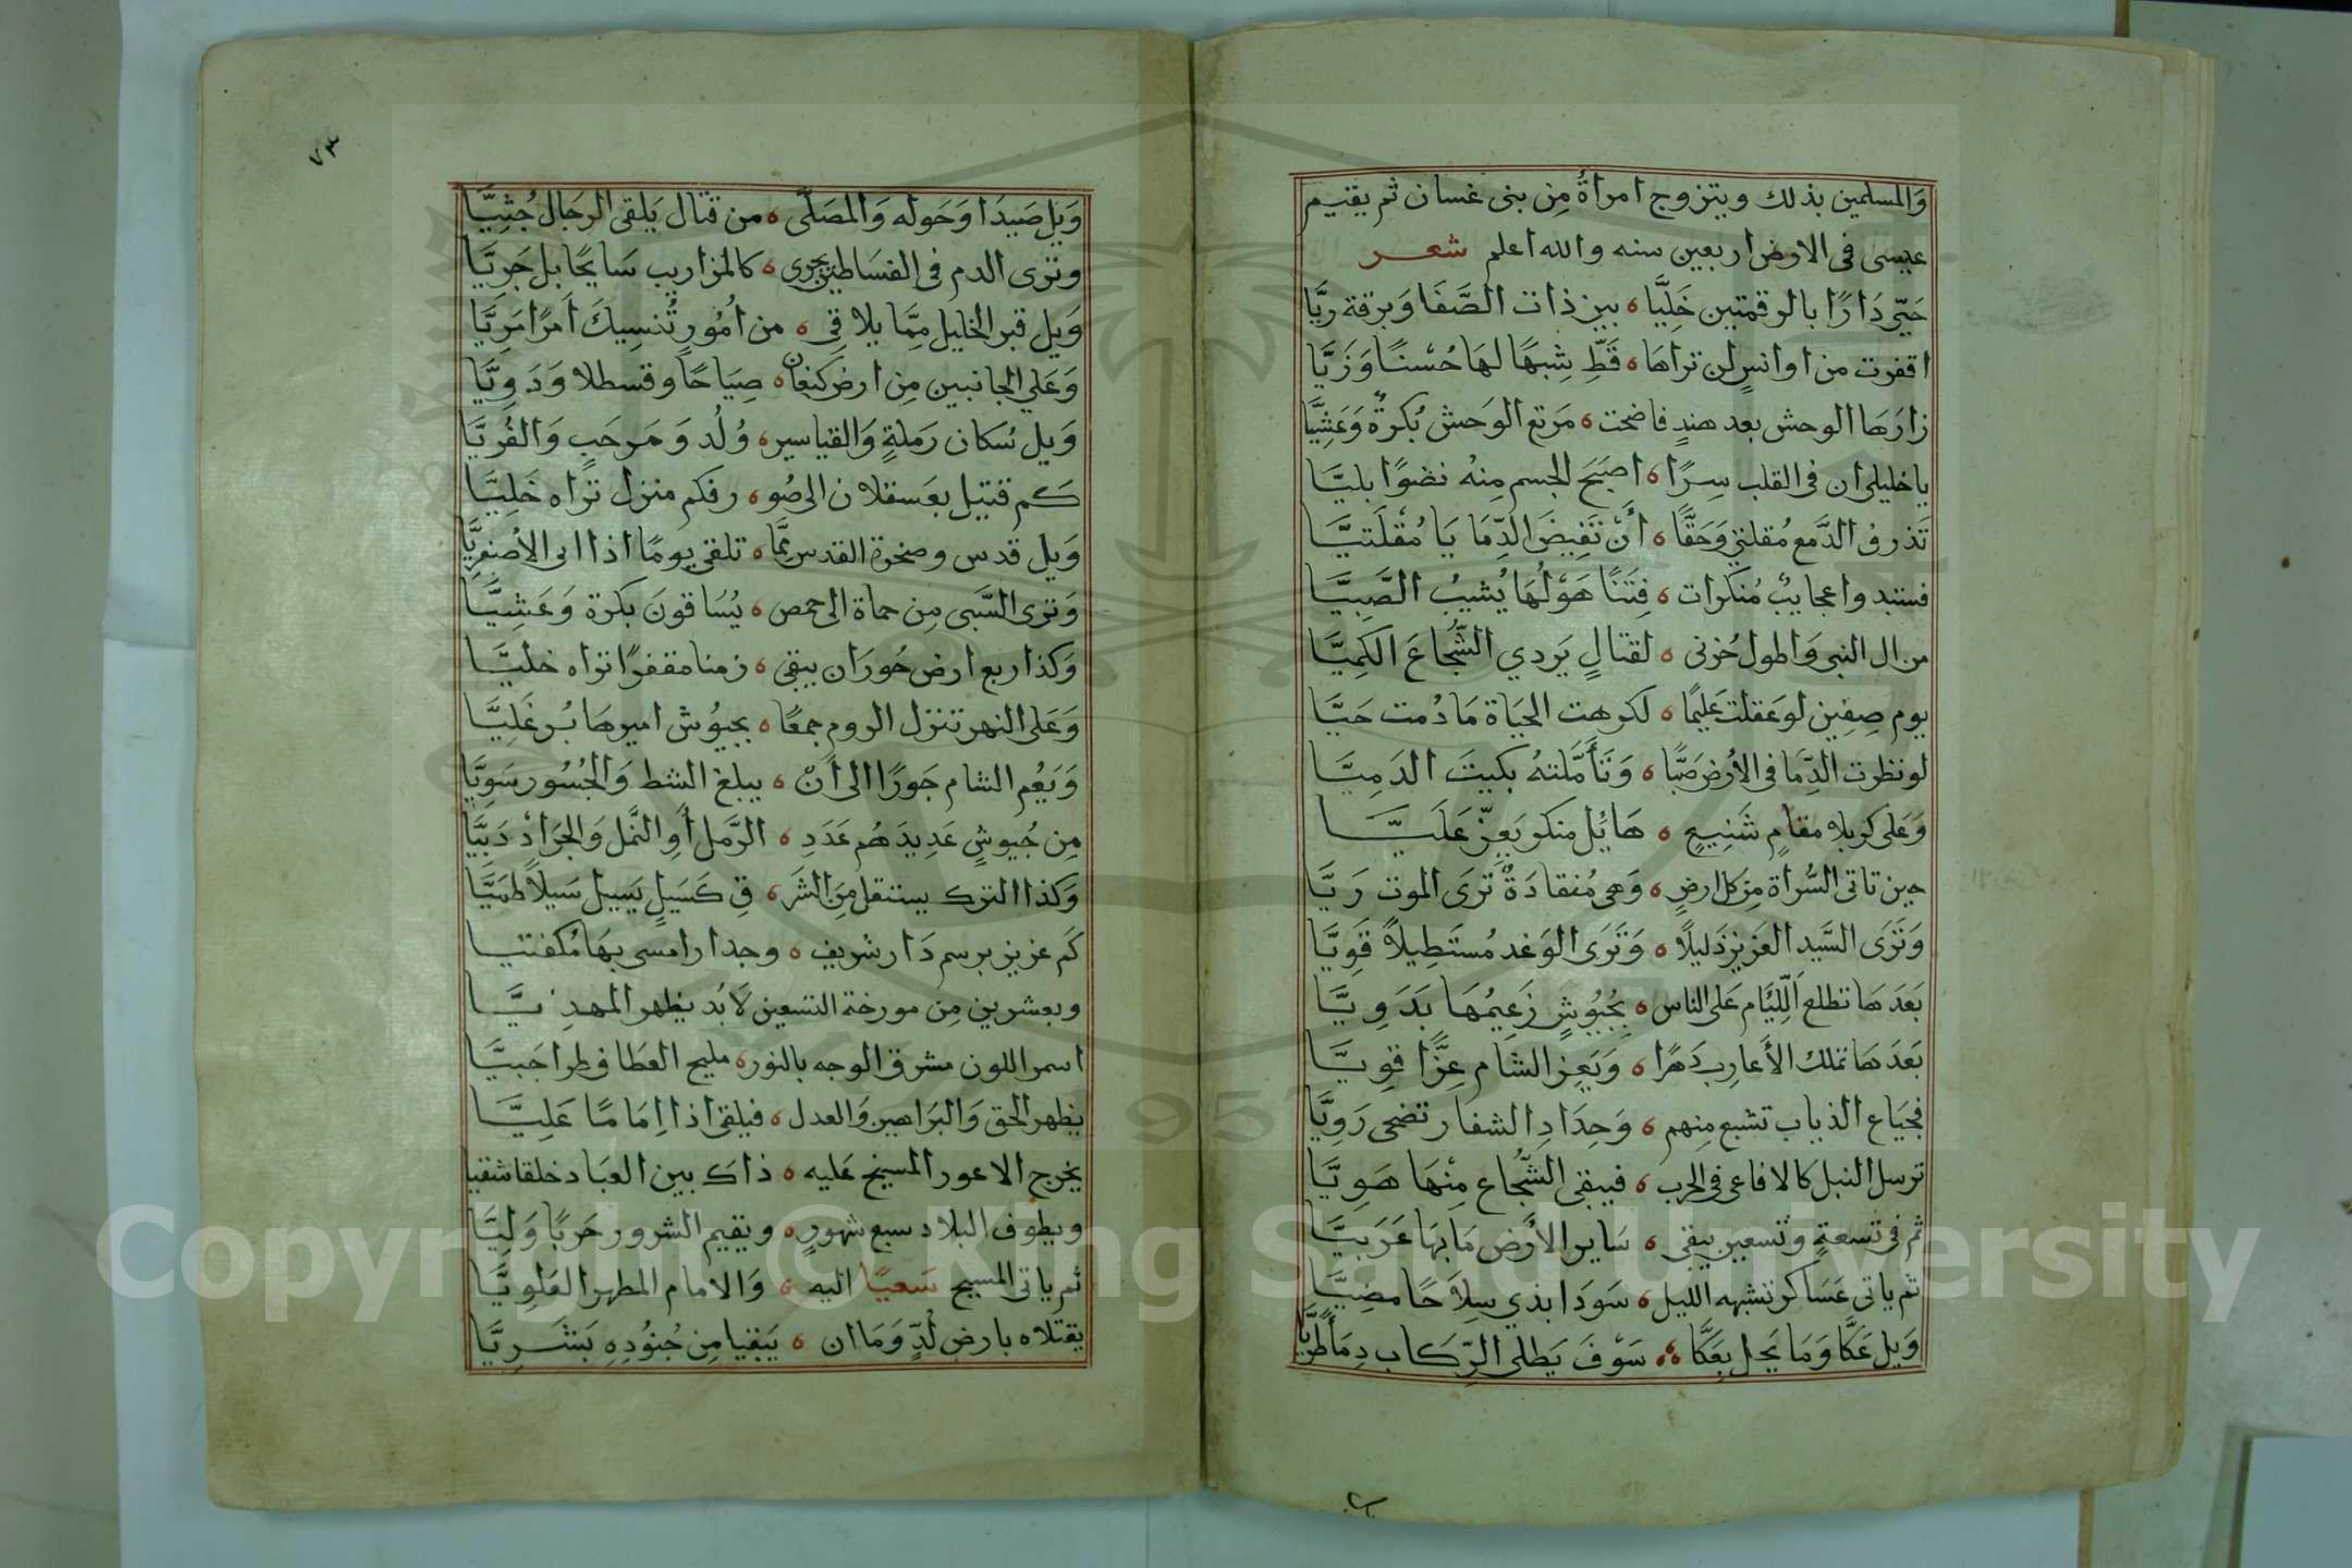 والمسلمين بذلك ويتزوج امراةُ مِن بنى غسان ثم يقيم
عيسى فى الارض اربعين سنه والله اعلم شعر
حَيّ دَارًا بالرقمتين خَلِيَّا ه بين ذات الصَّفَا وَبرقة ريَّا
اقفرت من اوانسٍ لن تراها ه قَطِّ شِبهًا لهَا حُسْنًا وَزَيَّا
زارَهَا الوحش بعد هندٍ فاضحت ه مَرتع الوَحش بُكرةً وَعَشِيَّا
يا خليلى ان فى القلب سِرًا ه اصبَحَ الجسم مِنهُ نضوًا بليَّا
تَذرفُ الدَّمع مُقلتي وَحَقًّا ه أَنْ تَفِيضَ الدِّمَا يَا مُقْلَتيَّا
فستبدوا عجايبٌ مُنكرات ه فِتَنًا هَوْلُهَا يُشيبُ الصَّبِيَّا
من ال النبى وَاطول حُزنى ه لقتالٍ يَردي الشُّجاعَ الكَمِيَّا
يوم صِفِين لو عَقلت عَليمًا ه لكرهت الحيَاة مَا دُمت حَيَّا
لو نظرت الدِّمَا فى الأرض صَبًّا ه وَتَأَمَّلتهُ بكيتَ الدَمِيَّا
وَعَلى كربلا مقامٍ شَنِيعٍ ه هَايُل منكر يَعِزّ عَلَيَّا
حين تاتى السُّراة مِن كل ارضٍ ه وَهى مُنقادَةٌ تَرَى الموت رَيَّا
وَتَرَى السَّيد العَزيز ذَليلًا ه وَتَرَى الوَغد مُستَطِيلاً قَوِيَّا
بَعدَهَا تطلع اللِّئَام عَلى الناس ه بِجُيُوشٍ زَعِيمُهَا بَدَوِيَّا
بَعدَهَا تملك الأعارب دَهرًا ه وَيَعِز الشام عِزًّا قوِيَّا
فجيَاع الذياب تشبع مِنهم ه وَحِدَادِ الشفار تضحى رَوِيَّا
ترسل النبل كالافاعى فى الحرب ه فيبقى الشُّجاع مِنْهَا هَوِيَّا
ثم فى تسعةٍ وتسعين يبقى ه سَاير الأرض مَا بهَا عَرَبيَّا
ثم ياتى عَسَاكر تشبه الليل ه سَودَا بذي سِلاَحًا مضِيَّا
وَيل عَكَّا وَمَا يَحل بعَكَّا ه سَوْفَ يَطلى الرِّكاب دِمَاً طَرِيَّا
٧٣
وَيل صَيدَا وَحَوله وَالمصَلَّى ه من قتال يَلقى الرجَال جُثِيَّا
وترى الدم فى الفسَاطين يجرى ه كالمزاريب سَايحًا بل جَرِيَّا
وَيل قبر الخليل مِمَّا يلاقِى ه من اُمُور تُنسِيكَ اَمرًا مَرِيَّا
وَعَلي الجانبين مِن ارض كنعان ه صِيَاحًا وقسطلا وَدَوِيَّا
وَيل سُكان رَملةٍ وَالقياسير ه وُلُد وَمَرحَبٍ وَالقُرِيَّا
كم قتيل بعَسقلان الى صُو ه رفكم منزل تراه خَلِيَّا
وَيل قدس وصخرة القدس عَمَّا ه تلقى يومًا اذا اتى الأصفرِيَّا
وَترى السَّبى مِن حماة الى حمص ه يُسَاقونَ بكرة وَعَشِيَّا
وَكذا ربع ارض حُورَان يبقى ه زمنا مقفرًا تراه خليَّا
وَعَلى النهر تنزل الروم جمعًا ه بجيُوش اميرهَا بُرغَلِيَّا
وَيَعُم الشام جَورًا الى اَنْ ه يبلغ الشط وَالجُسُور سَوِيَّا
مِن جُيوشٍ عَدِيدَهُم عَدَدِ ه الرَّمل أوِ النَّمل وَالجَرَادْ دَبيَّا
وَكذا الترك يستقل مِنَ الشَر ه قِ كَسَيلٍ يَسِيل سَيلاً طمَيَّا
كَم عزيز برسم دَار شريف ه وجدار امسى بهَا مُكفتيا
وبعشرين مِن مورخة التسعين لاَ بُد يظهر المهدِيَّا
اسمر اللون مشرق الوجه بالنور ه مليح العطا فى طراجَبيَّا
يظهر الحق وَالبَراهين وَالعدل ه فيلقى اذا اِمَامًا عَلِيَّا
يخرج الاعور المسيح عَليه ه ذاك بين العبَاد خلقا شقيا
ويطوف البلاد سبع شهورٍ ه ويقيم الشرور حَربًا وَلِيَّا
ثم ياتى المسيح سَعيًا اليه ه وَالامام المطهر العَلوِيَّا
يقتلاه بارض لُدٍّ وَمَا ان ه يَبقيا مِن جُنُودِهِ بَشَرِيَّا